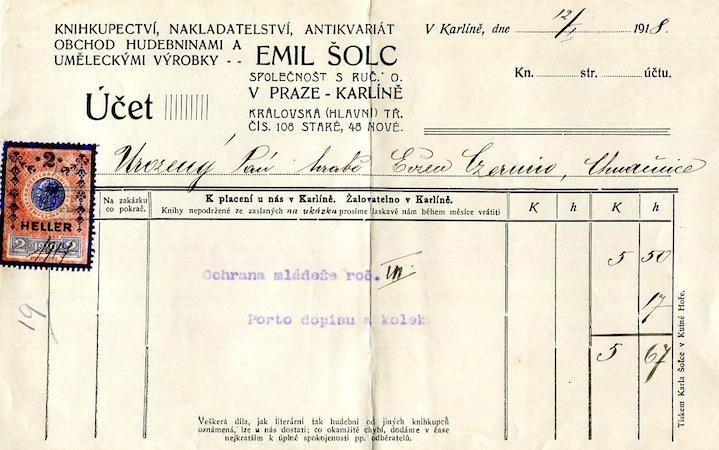 KNIHKUPECTVÍ, NAKLADATELSTVÍ, ANTIKVARIÁT
OBCHOD HUDEBNINAMI A
UMĚLECKÝMI VÝROBKY - -
EMIL ŠOLC
SPOLEČNOST S RUČ. O.
V PRAZE - KARLÍNĚ
KRÁLOVSKÁ (HLAVNÍ) TŘ.
ČÍS. 108 STARÉ, 48 NOVÉ.
V Karlíně, dne 12/I 1918.
Kn. str. účtu.
Účet
Urozený Pán hrabě Evžen Czernin,
2
HELLER
2 2
1917
19
Na zakázku
co pokrač.
K placení u nás v Karlíně. Žalovatelno v Karlíně.
Knihy nepodržené ze zaslaných na ukázku prosíme laskavě nám během měsíce vrátiti
K h K h
Ochrana mládeže roč. III. 5 50
Porto dopisu a kolek 17
5 67
Veškerá díla, jak literární tak hudební od jiných knihkupců
oznámená, lze u nás dostati; co okamžitě chybí, dodáme v čase
nejkratším k úplné spokojenosti pp. odběratelů.
Tiskem Karla Šolce v Kutné Hoře.